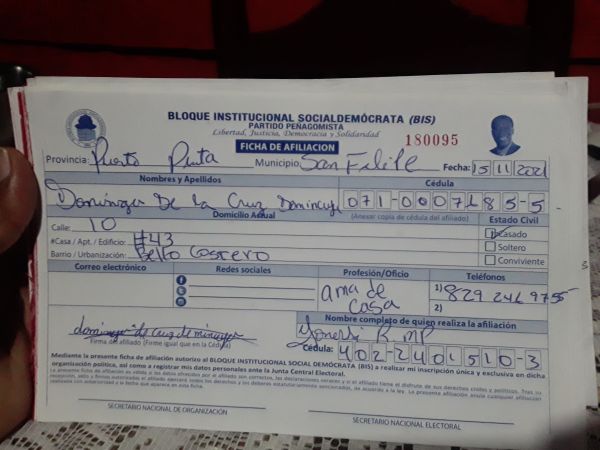 BLOQUE INSTITUCIONAL SOCIALDEMÓCRATA (BIS)
PARTIDO PEÑAGOMISTA
Libertad, Justicia, Democracia y Solidaridad
FICHA DE AFILIACION
180095
Provincia: Puerto Plata Municipio: San Felipe Fecha: 15 11 2021
Nombres y Apellidos Cédula
Dominga De La Cruz 071-0007185-5
Domicilio Actual (Anexar copia de cédula del afiliado) Estado Civil
Calle: 10 Casado
#Casa / Apt. / Edificio: #43 Soltero
Barrio / Urbanización: Bello Costero Conviviente
Correo electrónico Redes sociales Profesión/Oficio Teléfonos
ama de casa
1) 829 246 9755
2)
Nombre completo de quien realiza la afiliación
Firma del afiliado (Firme igual que en la Cédula)
Cédula: 402-2401510-3
Mediante la presente ficha de afiliación autorizo al BLOQUE INSTITUCIONAL SOCIAL DEMÓCRATA (BIS) a realizar mi inscripción única y exclusiva en dicha
organización política, así como a registrar mis datos personales ante la Junta Central Electoral.
SECRETARIO NACIONAL DE ORGANIZACIÓN SECRETARIO NACIONAL ELECTORAL